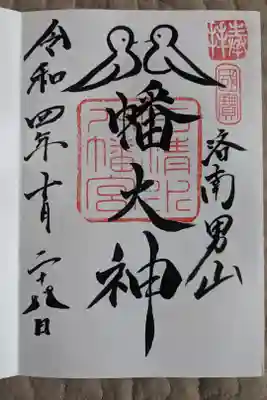 奉拝
国寶
洛南男山
八幡大神
石清水八幡宮
令和四年十月二十九日